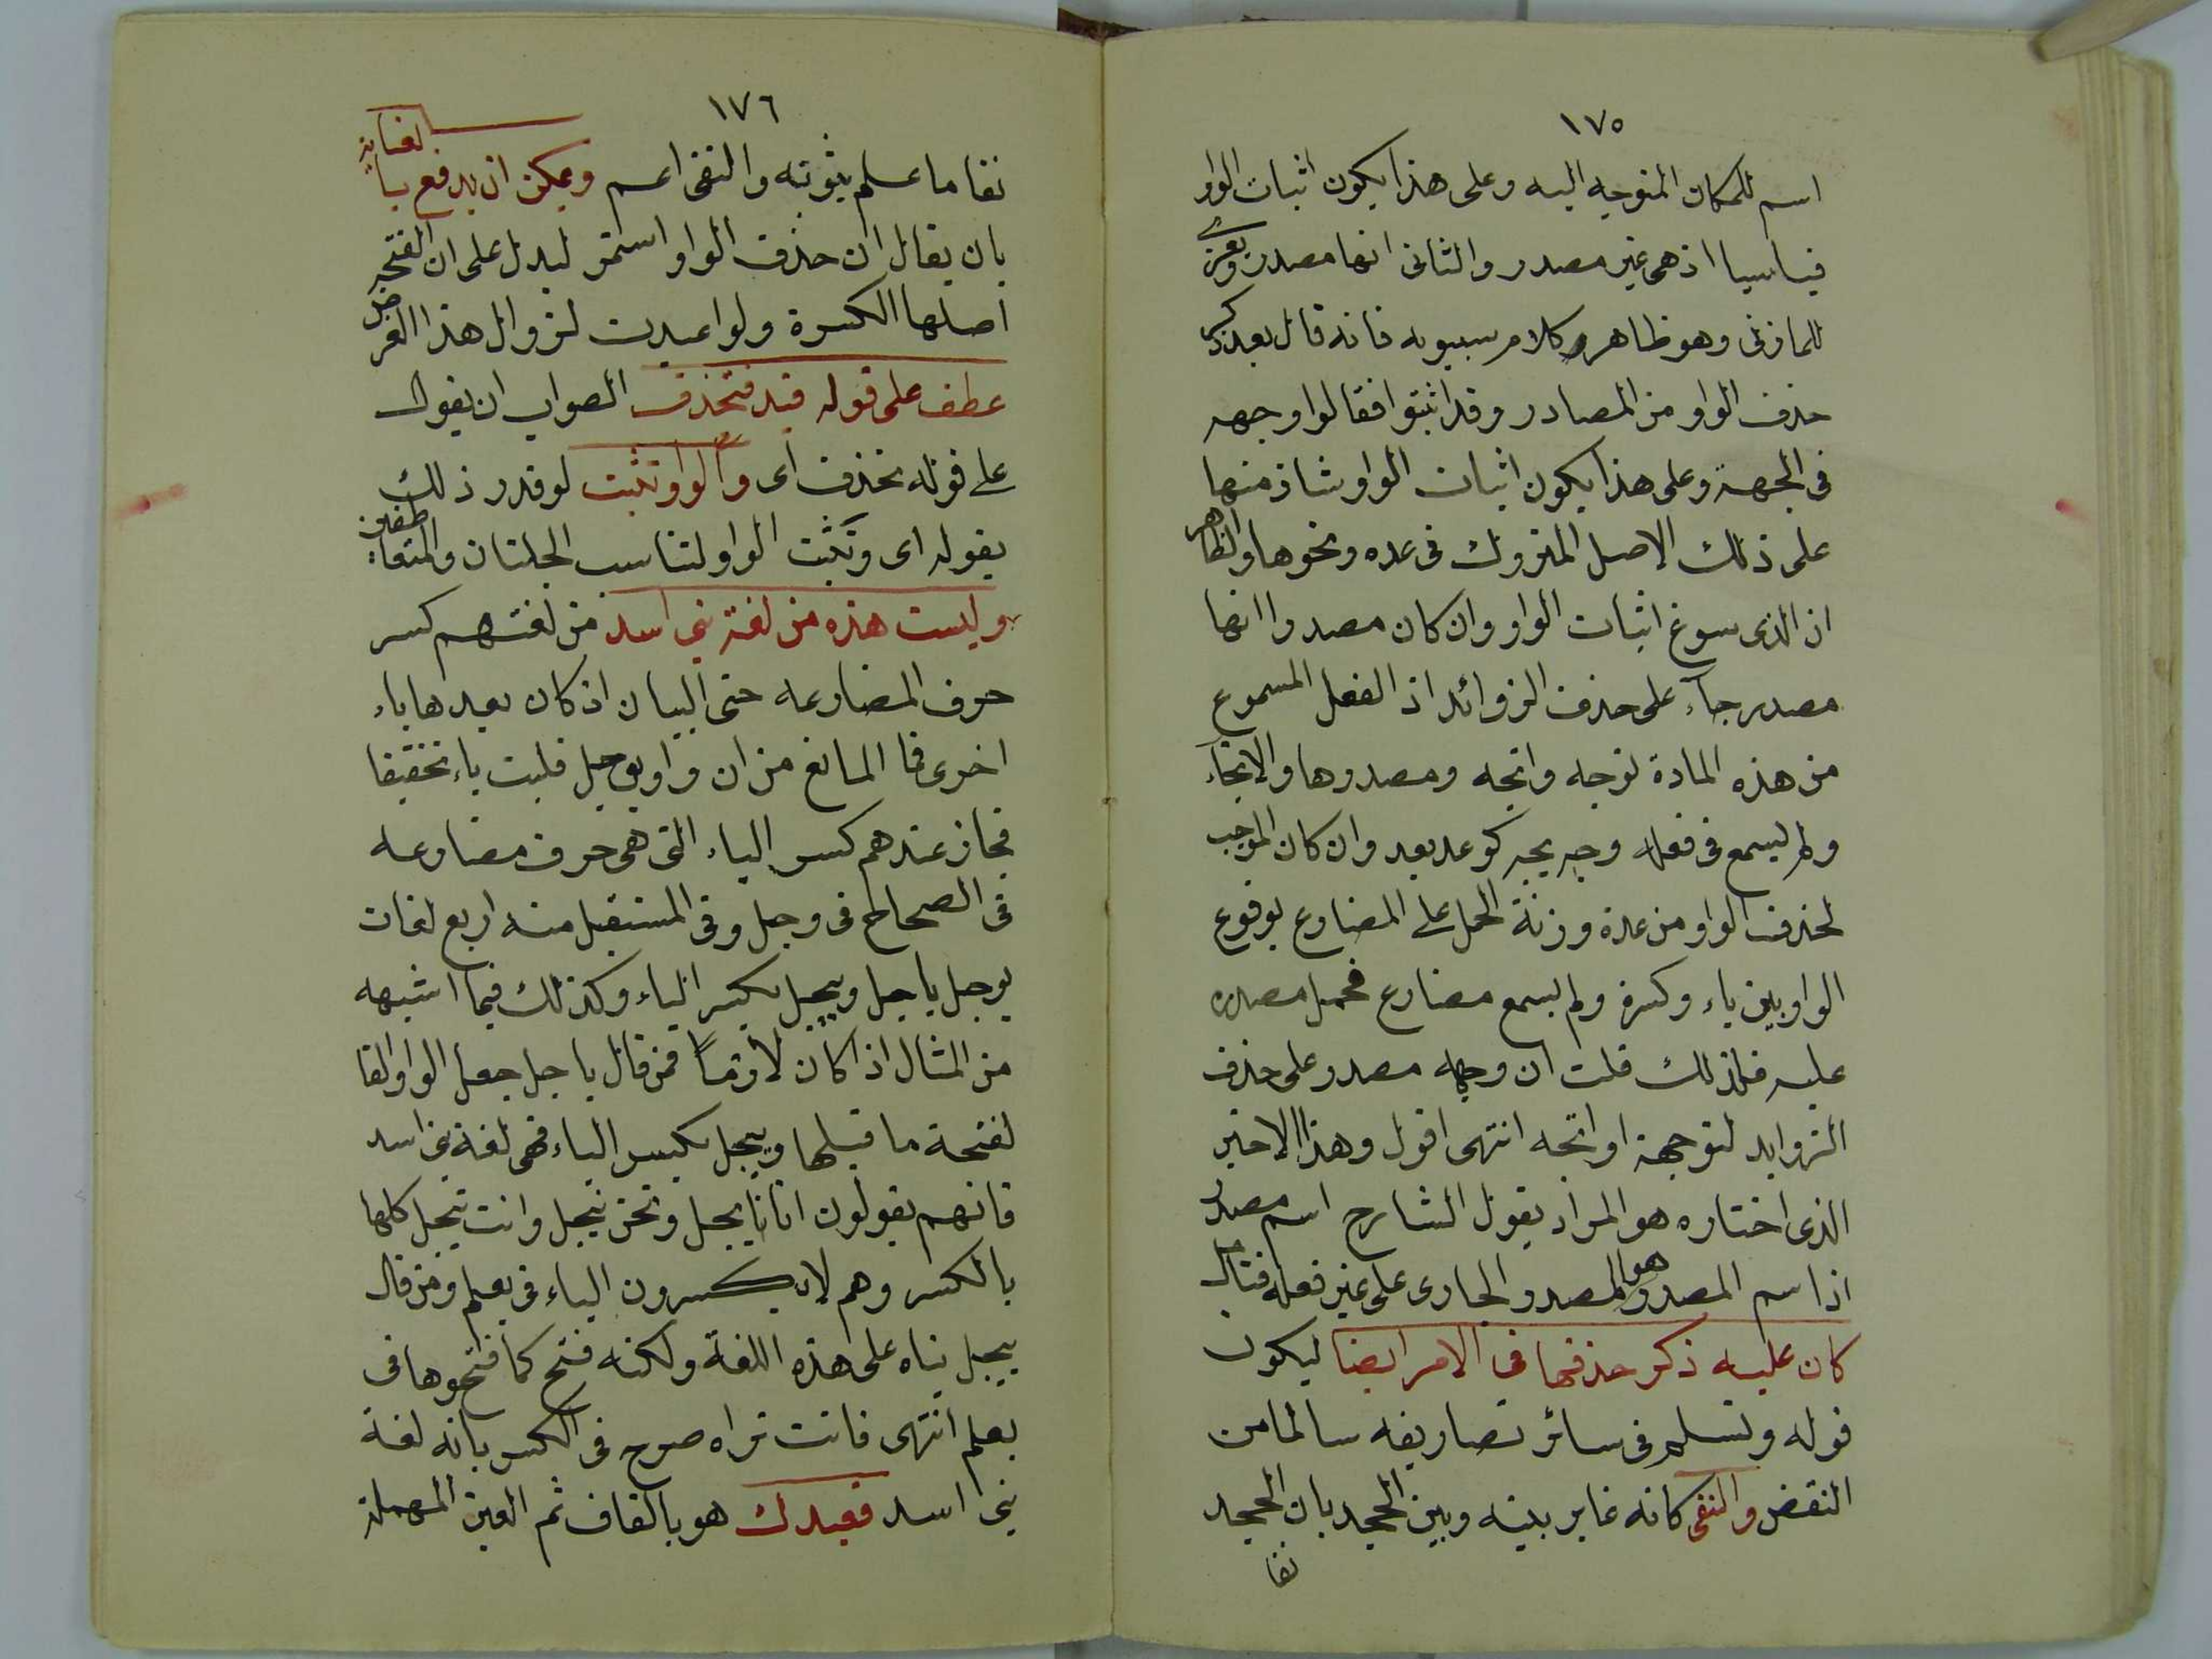 ١٧٥
اسم للمكان المتوجه اليه وعلى هذا يكون اثبات الواو
قياسيا اذ هى غير مصدر والثانى انها مصدر ويعزى
للمازنى وهو ظاهر كلام سيبويه فانه قال بعد ذكر
حذف الواو من المصادر وقد اثبتوا فقالوا وجهه
فى الجهة وعلى هذا يكون اثبات الواو شاذ منها
على ذلك الاصل المتروك فى عده ونحوها والظاهر
ان الذى سوغ اثبات الواو وان كان مصدرا انها
مصدر جاء على حذف الزوائد اذ الفعل المسموع
من هذه المادة توجه واتجه ومصدرها والاتجاء
ولم يسمع فى فعله وجه يجه كوعد يعد وان كان الموجب
لحذف الواو من عدة وزنة الحمل على المضارع بوقوع
الواو بين ياء وكسرة ولم يسمع مضارع فحمل مصدره
عليه فلذلك قلت ان وجهه مصدر على حذف
الزوايد لتوجهة او اتجه انتهى اقول وهذا الاخير
الذى اختاره هو المراد بقول الشارح اسم مصدر
اذ اسم المصدر هو المصدر الجارى على غير فعله فتامل
كان عليه ذكر حذفها فى الامر ايضا ليكون
قوله وتسلم فى سائر تصاريفه سالما من
النقض والنفى كانه غاير بينه وبين الجحد بان الجحد
نفا
١٧٦
نفا ما علم ثبوته والنفى اعم ويمكن ان يدفع بالعناية
بان يقال ان حذف الواو استمر ليدل على ان الفتحة
اصلها الكسرة ولو اعيدت لزوال هذا الغرض
عطف على قوله قيد فتحذف الصواب ان يقول
على قوله تحذف اى والواو تثبت لو قدر ذلك
بقوله اى وتثبت الواو لتناسب الجملتان والمتعاطفين
وليست هذه من لغة بنى اسد من لغتهم كسر
حرف المضارعه حتى الياء ان كان بعدها ياء
اخرى فما المانع من ان واو يوجل قلبت ياء تخفيفا
فجاز عندهم كسر الياء التى هى حرف مضارعه
فى الصحاح فى وجل وفى المستقبل منه اربع لغات
يوجل ياجل وييجل بكسر الياء وكذلك فيما اشبهه
من المثال اذا كان لازما فمن قال ياجل جعل الواو الفا
لفتحة ما قبلها وييجل بكسر الياء فهى لغة بنى اسد
فانهم يقولون انا ايجل ونحن نيجل وانت تيجل كلها
بالكسر وهم لا يكسرون الياء فى يعلم ومن قال
ييجل بناه على هذه اللغة ولكنه فتح كما فتحوها فى
يعلم انتهى فانت تراه صرح فى الكسر بانه لغة
بنى اسد قعيدك هو بالقاف ثم العين المهملة